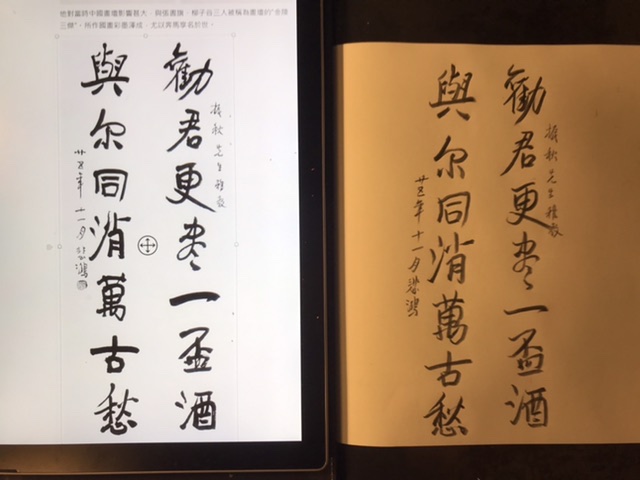 他對當時中國畫壇影響甚大，與張書旗、柳子谷三人被稱為畫壇的“金陵
三傑”。所作國畫彩墨渾成，尤以奔馬享名於世。
勸君更盡一盃酒
先生雅教
與尔同消萬古愁
廿五年十一月悲鴻
勸君更盡一盃酒
先生雅教
與尔同消萬古愁
廿五年十一月悲鴻